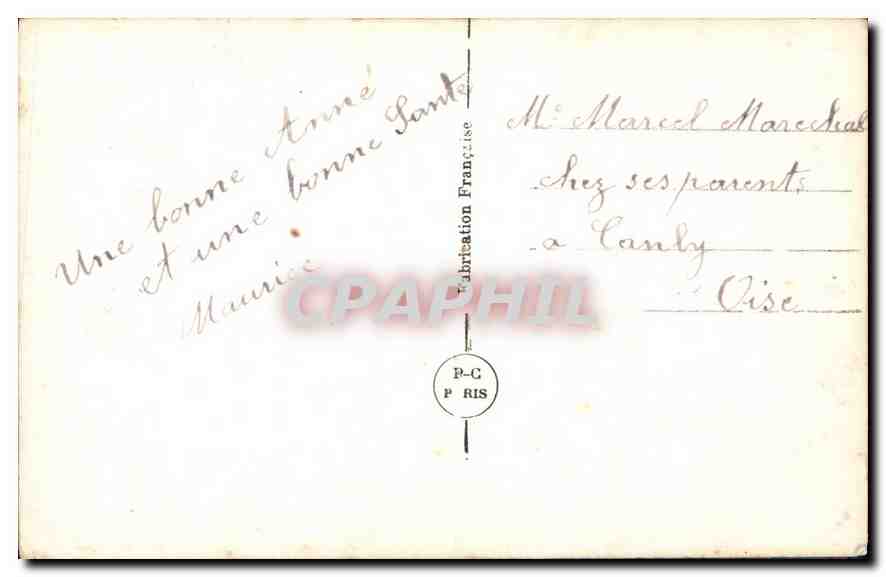 Une bonne Anné
et une bonne Santé
Maurice
Fabrication Française
P-C
P RIS
Mr Marcel Marechal
chez ses parents
a Canly
Oise
CPAPHIL